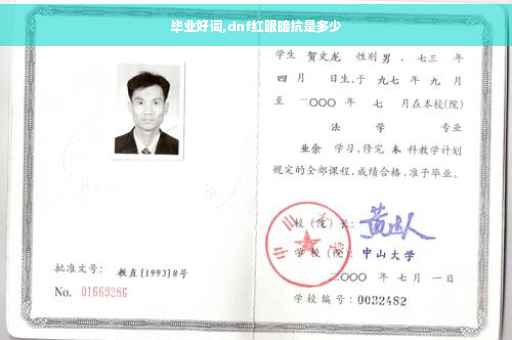 毕业好词,dnf红眼暗抗是多少
学生 贺文龙 性别 男 、七三 年
四 月 日生,于 九七 年 九 月
至 二〇〇〇 年 七 月在本校(院)
法 学 专业
业余 学习,修完 本 科教学计划
规定的全部课程,成绩合格,准予毕业。
校(院)长:
学校(院): 中山大学
二〇〇〇 年 七 月 一 日
批准文号: 教直[1993]8号
No. 01669286
学校编号: 0032482